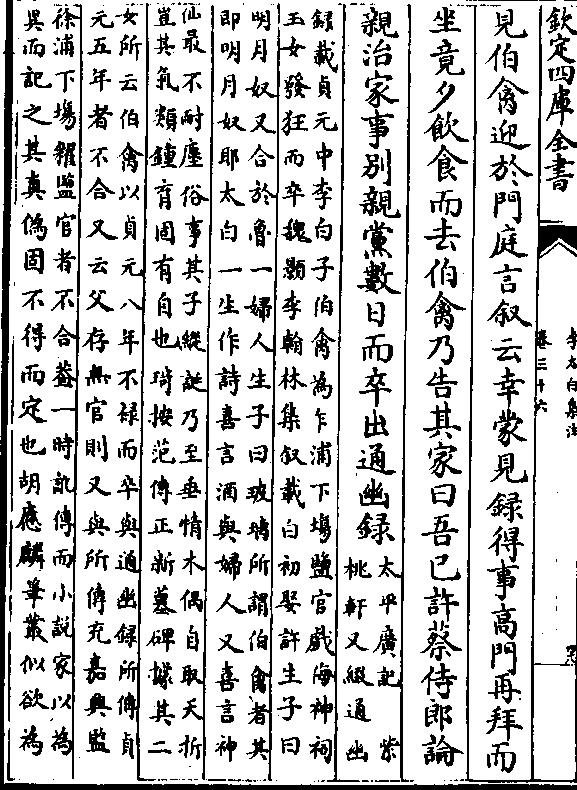 欽定四庫全書
李太白集注
卷三十六
見伯禽迎於門庭言叙云幸蒙見録得事高門再拜而
坐竟夕飲食而去伯禽乃告其家曰吾已許蔡侍郎論
親治家事別親黨數日而卒出通幽録
太平廣記 紫
桃軒又綴通幽
録載貞元中李白子伯禽為乍浦下場鹽官戲侮神祠
玉女發狂而卒魏顥李翰林集叙載白初娶許生子曰
明月奴又合於魯一婦人生子曰玻璃所謂伯禽者其
即明月奴耶太白一生作詩喜言酒與婦人又喜言神
仙最不耐塵俗事其子縱誕乃至垂情木偶自取夭折
豈其氣類鍾育固有自也琦按范傳正新墓碑據其二
女所云伯禽以貞元八年不禄而卒與通幽録所傳貞
元五年者不合又云父存無官則又與所傳充嘉興監
徐浦下場糴鹽官者不合葢一時訛傳而小説家以為
異而記之其真偽固不得而定也胡應麟筆叢似欲為